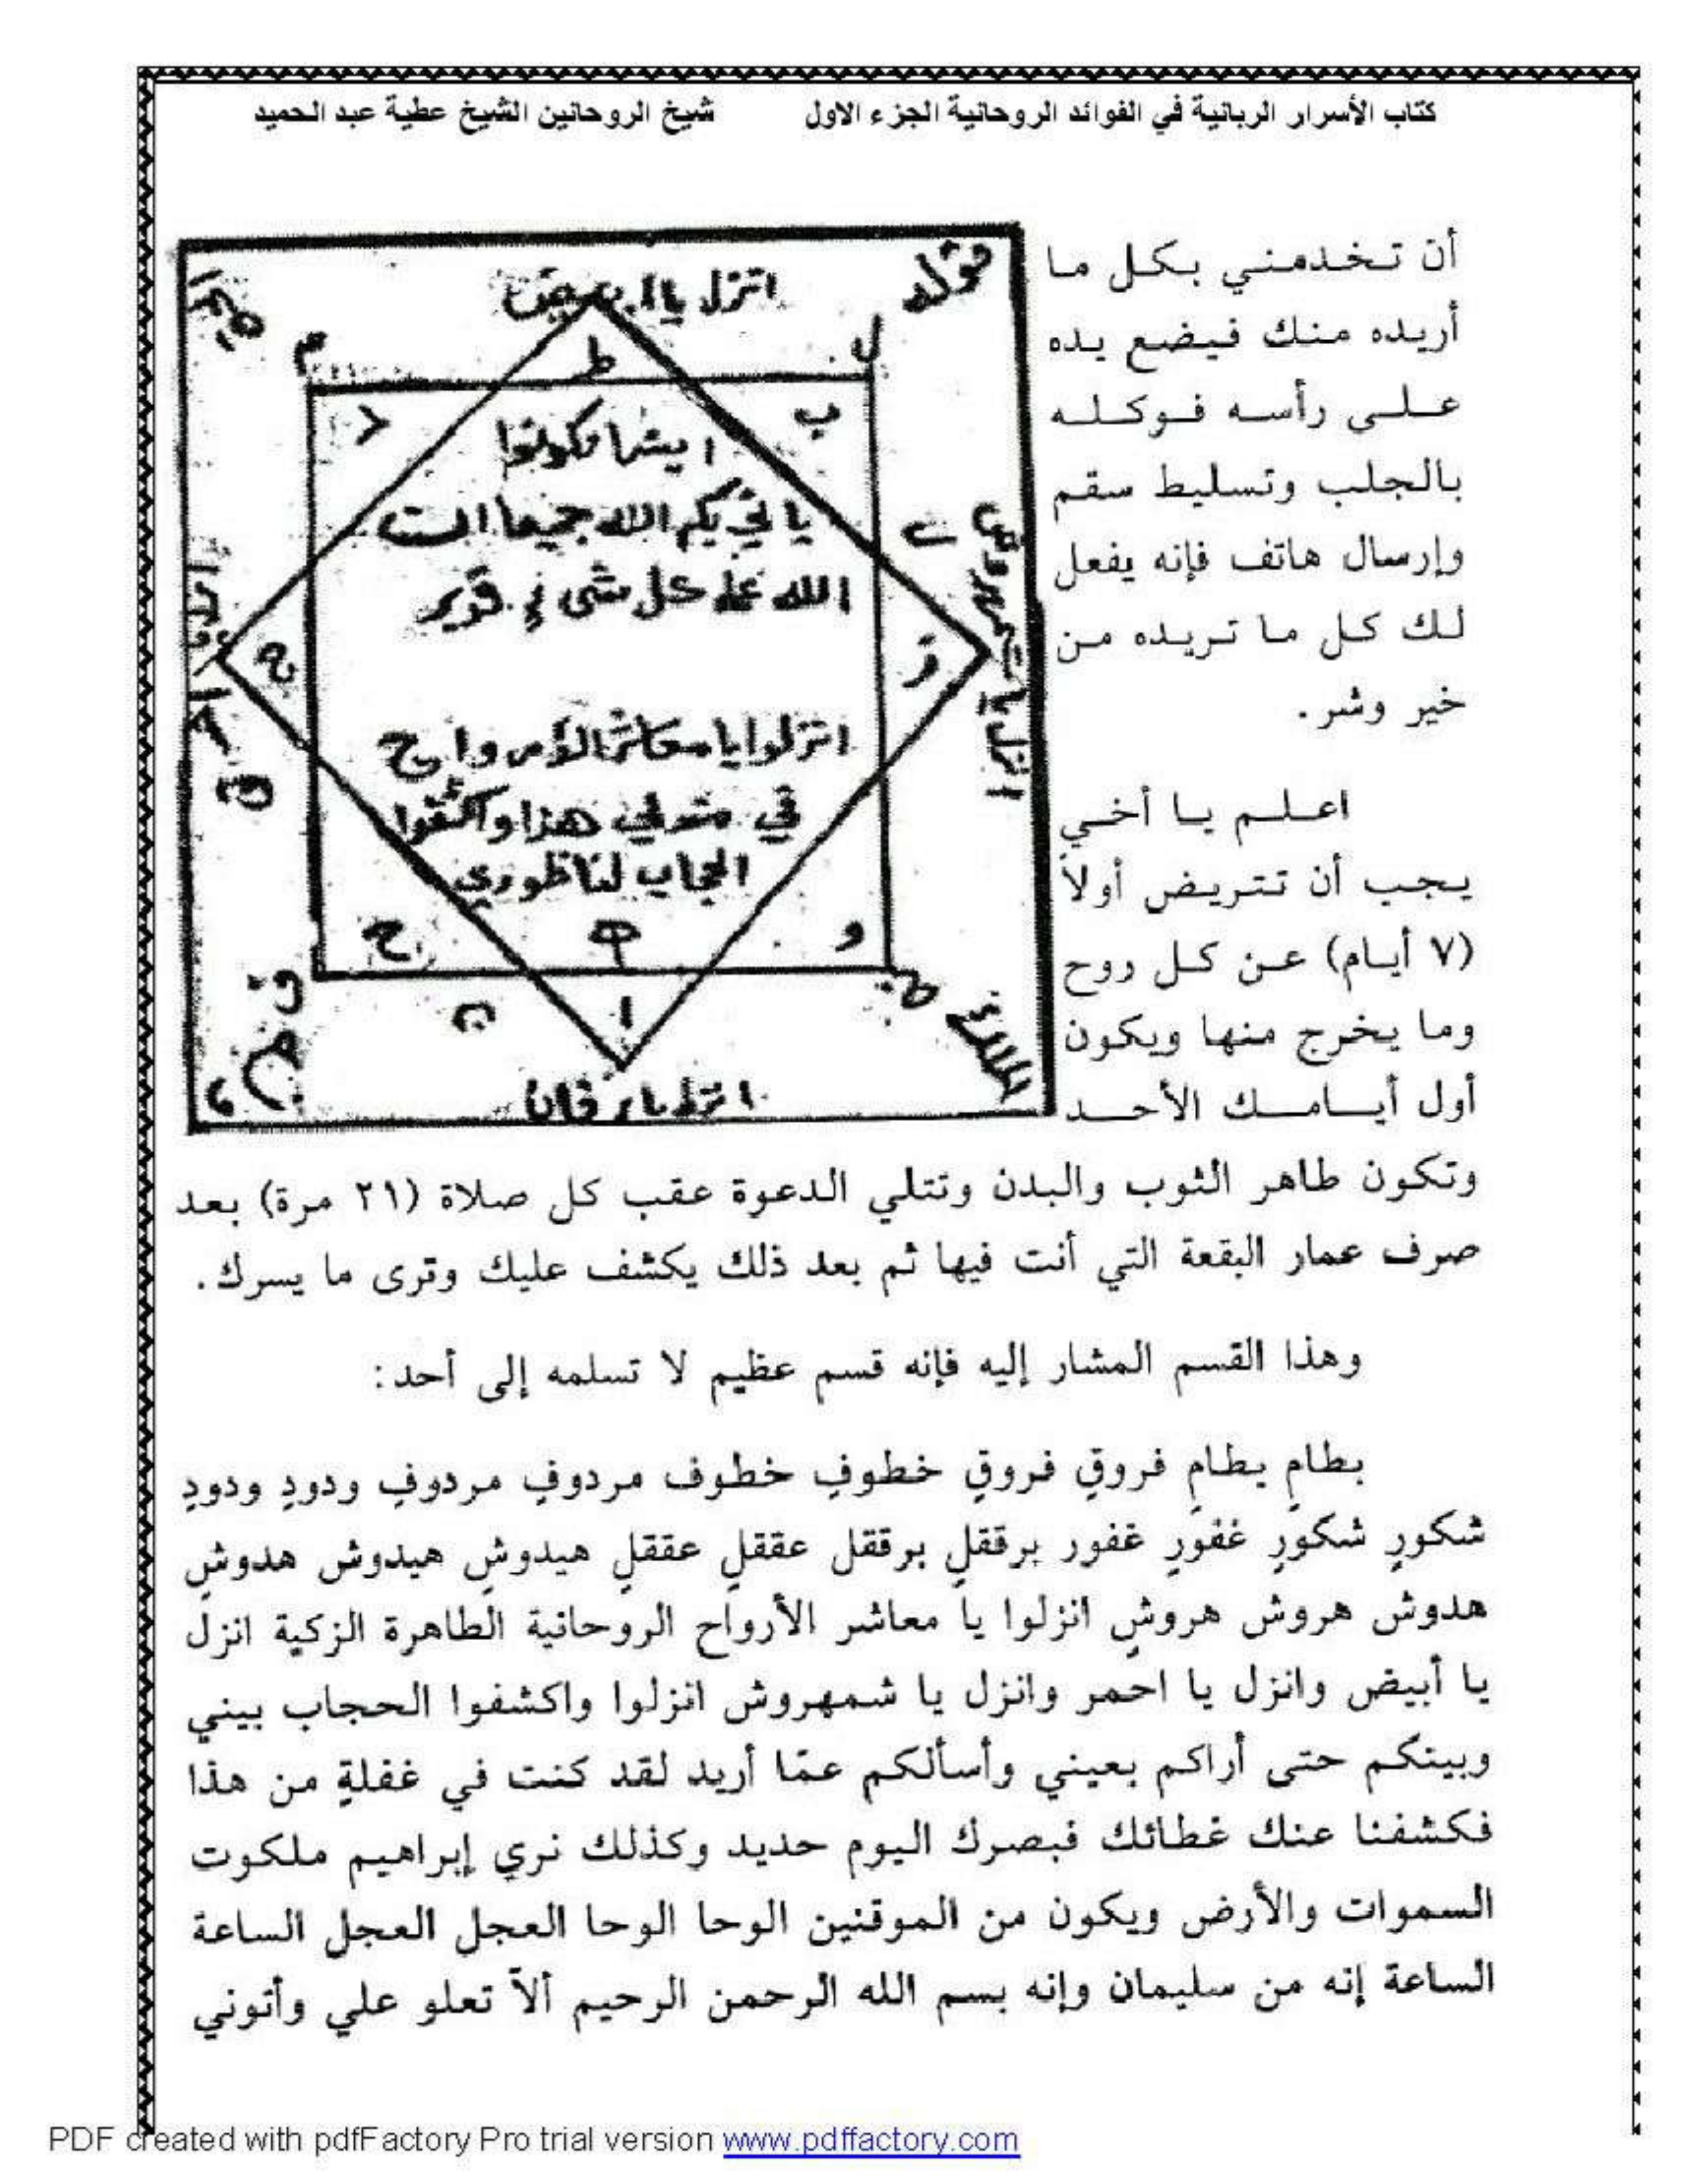 كتاب الأسرار الربانية في الفوائد الروحانية الجزء الاول شيخ الروحانين الشيخ عطية عبد الحميد
أن تخدمني بكل ما
أريده منك فيضع يده
على رأسه فوكله
بالجلب وتسليط سقم
وإرسال هاتف فإنه يفعل
لك كل ما تريده من
خير وشر.
اعلم يا أخي
يجب أن تتريض أولاً
(٧ أيام) عن كل روح
وما يخرج منها ويكون
أول أيامك الأحد
قوله
م
ل
ط
د
ب
اينما تكونوا
يأتي بكم الله جميعا ان
الله على كل شيء قدير
ز
انزلوا يا معاشر الأرواح
في هذا واكشفوا
الحجاب لناظوري
ح
و
ا
وتكون طاهر الثوب والبدن وتتلي الدعوة عقب كل صلاة (٢١ مرة) بعد
صرف عمار البقعة التي أنت فيها ثم بعد ذلك يكشف عليك وترى ما يسرك.
وهذا القسم المشار إليه فإنه قسم عظيم لا تسلمه إلى أحد:
بطامٍ بطامٍ فروقٍ فروقٍ خطوفٍ خطوف مردوفٍ مردوفٍ ودودٍ ودودٍ
شكورٍ شكورٍ غفورٍ غفور برققلٍ برققل عققلٍ عققلٍ هيدوشٍ هيدوش هدوشٍ
هدوش هروش هروشٍ انزلوا يا معاشر الأرواح الروحانية الطاهرة الزكية انزل
يا أبيض وانزل يا احمر وانزل يا شمهروش انزلوا واكشفوا الحجاب بيني
وبينكم حتى أراكم بعيني وأسألكم عمّا أريد لقد كنت في غفلةٍ من هذا
فكشفنا عنك غطائك فبصرك اليوم حديد وكذلك نري إبراهيم ملكوت
السموات والأرض ويكون من الموقنين الوحا الوحا العجل العجل الساعة
الساعة إنه من سليمان وإنه بسم الله الرحمن الرحيم ألاّ تعلو علي وأتوني
PDF created with pdfFactory Pro trial version www.pdffactory.com